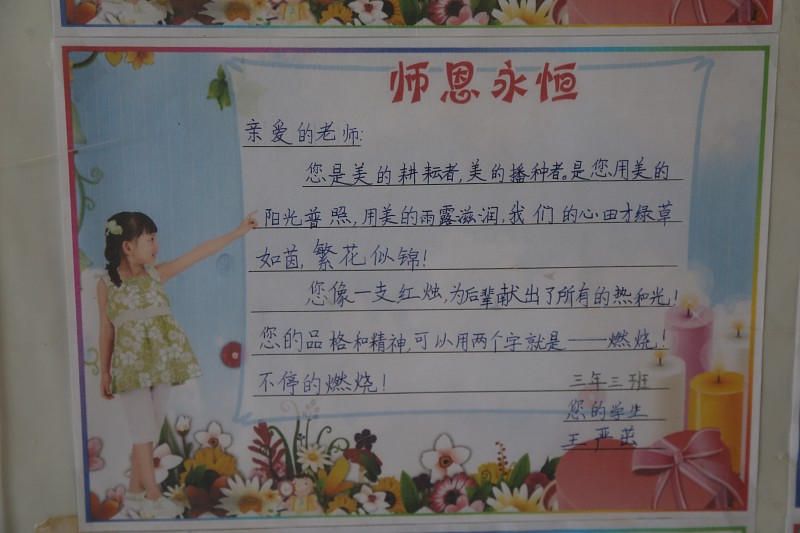 师恩永恒
亲爱的老师:
您是美的耕耘者,美的播种者。是您用美的
阳光普照,用美的雨露滋润,我们的心田才绿草
如茵,繁花似锦!
您像一支红烛,为后辈献出了所有的热和光!
您的品格和精神,可以用两个字就是——燃烧!
不停的燃烧!
三年三班
您的学生
王严茁